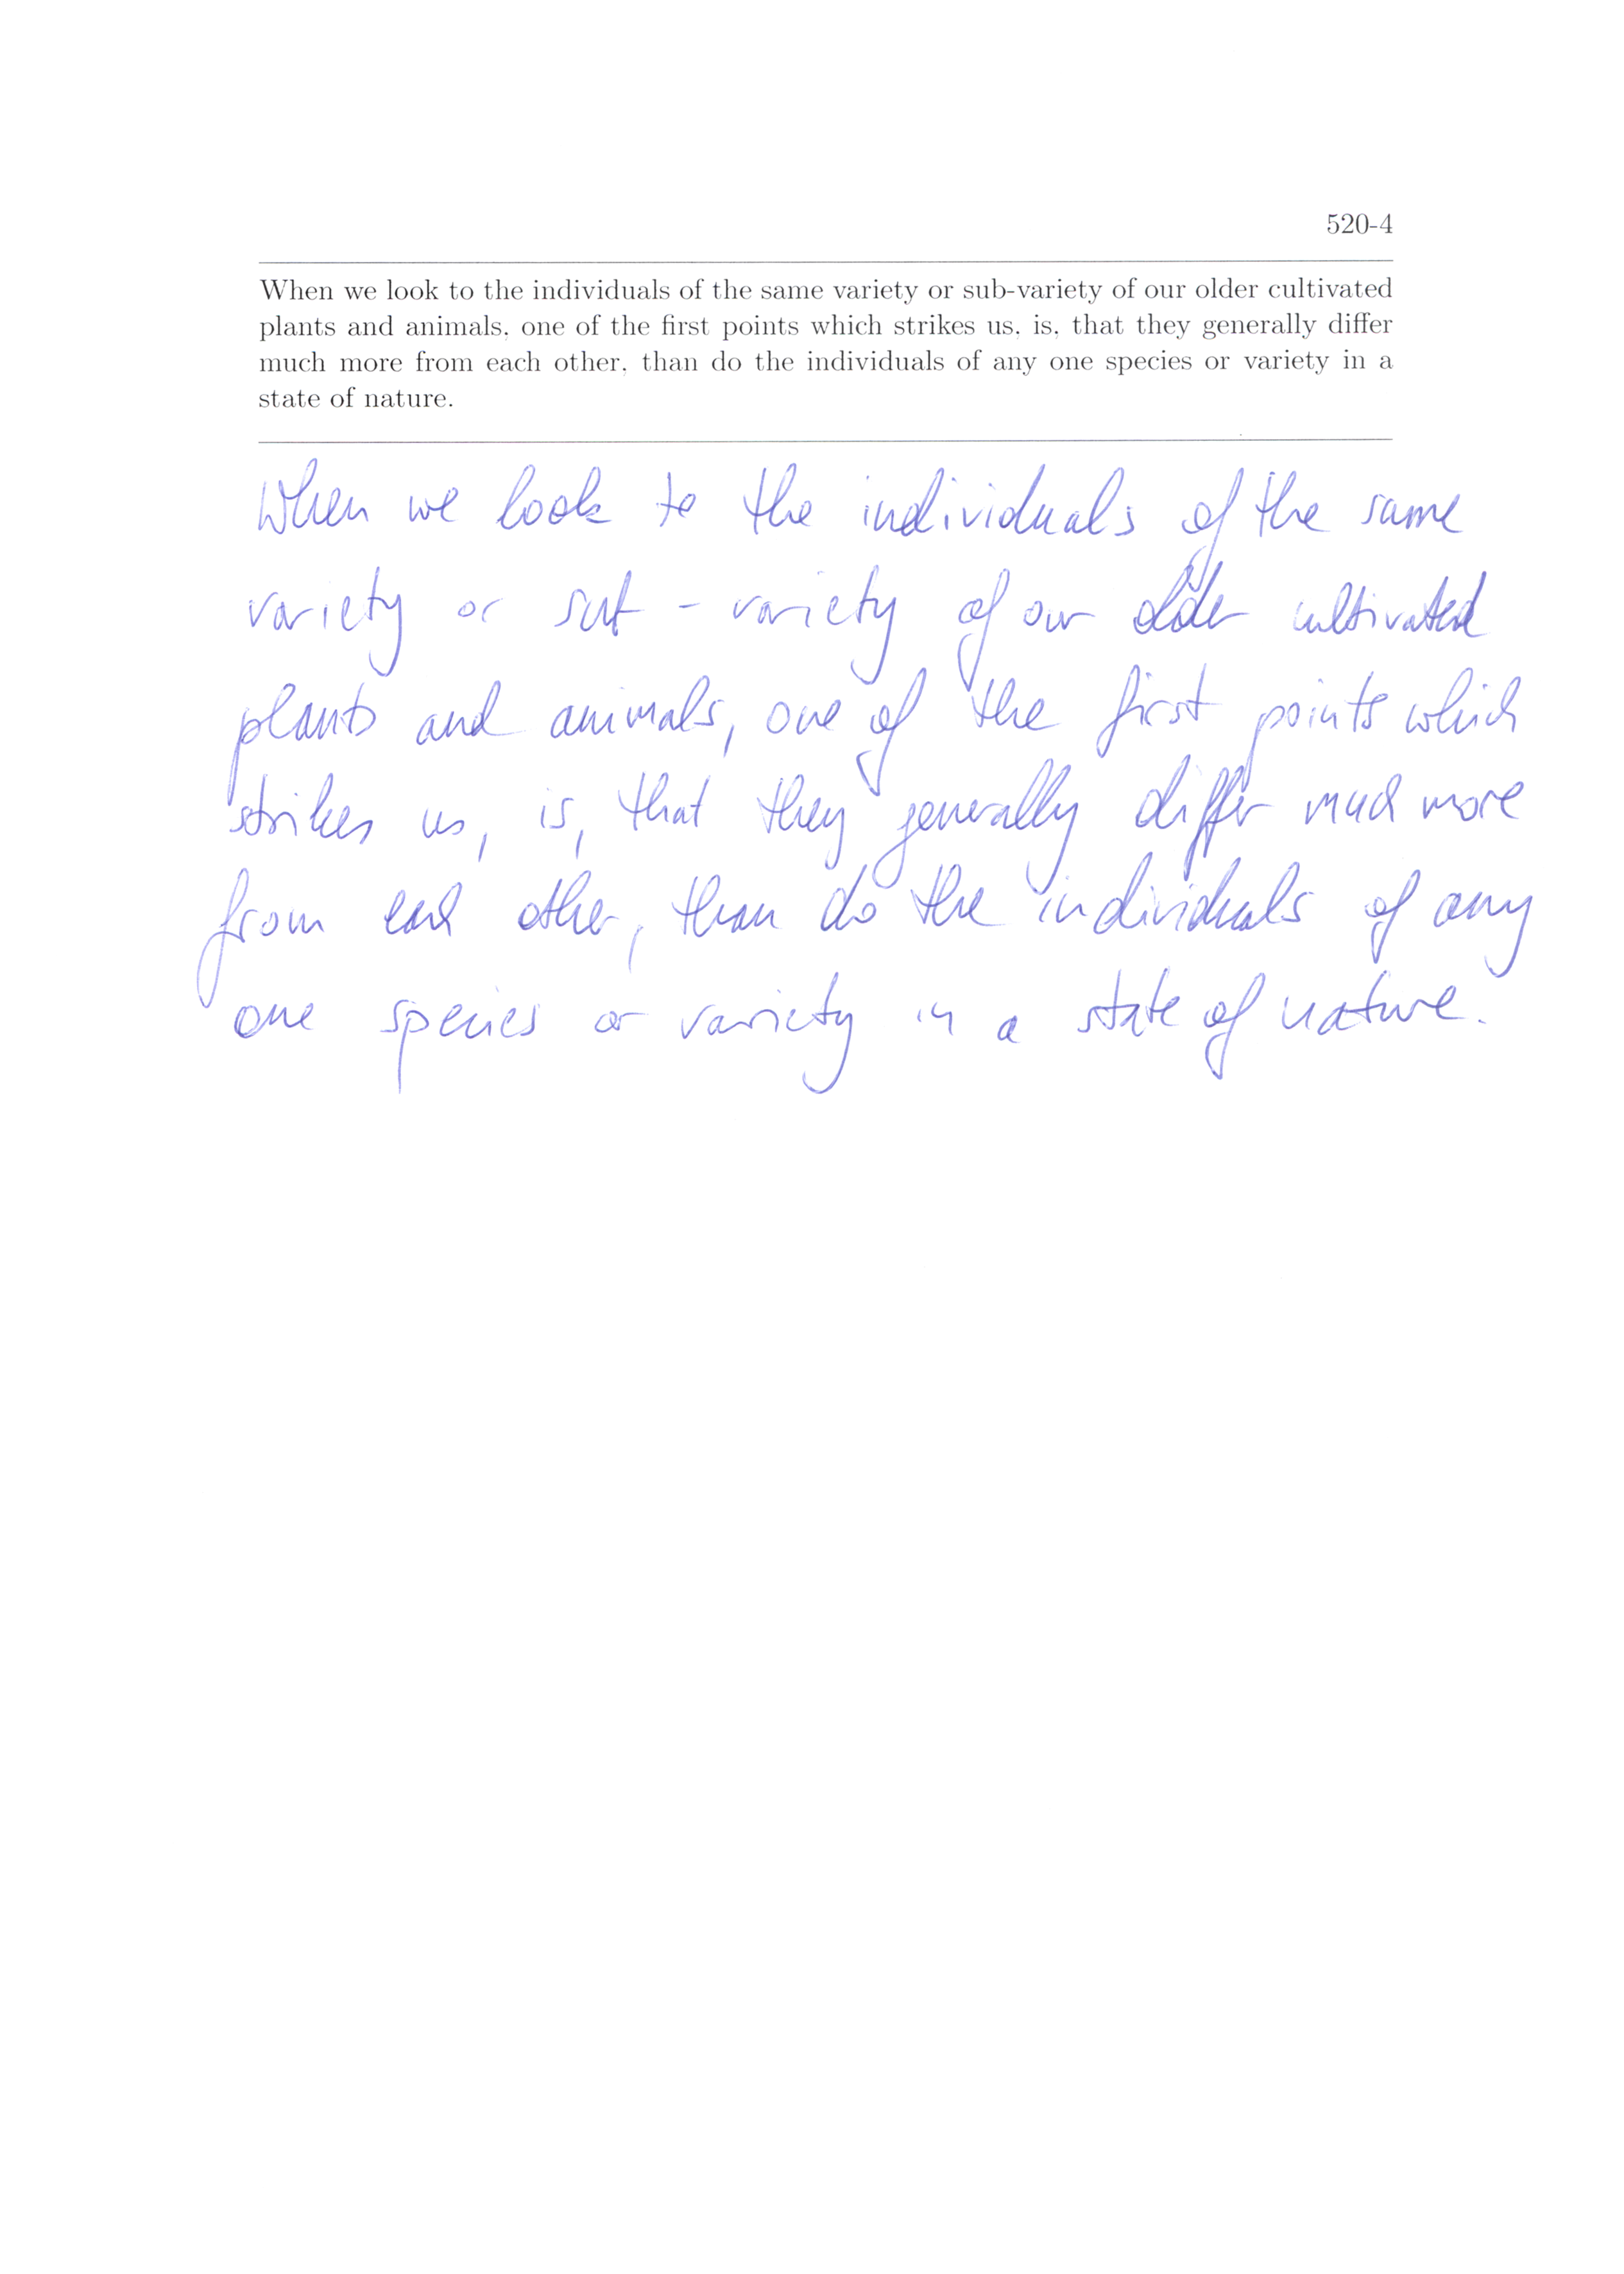 520-4
When we look to the individuals of the same variety or sub-variety of our older cultivated
plants and animals, one of the first points which strikes us, is, that they generally differ
much more from each other, than do the individuals of any one species or variety in a
state of nature.
When we look to the individuals of the same
variety or sub - variety of our older cultivated
plants and animals, one of the first points which
strikes us, is, that they generally differ much more
from each other, than do the individuals of any
one species or variety in a state of nature.